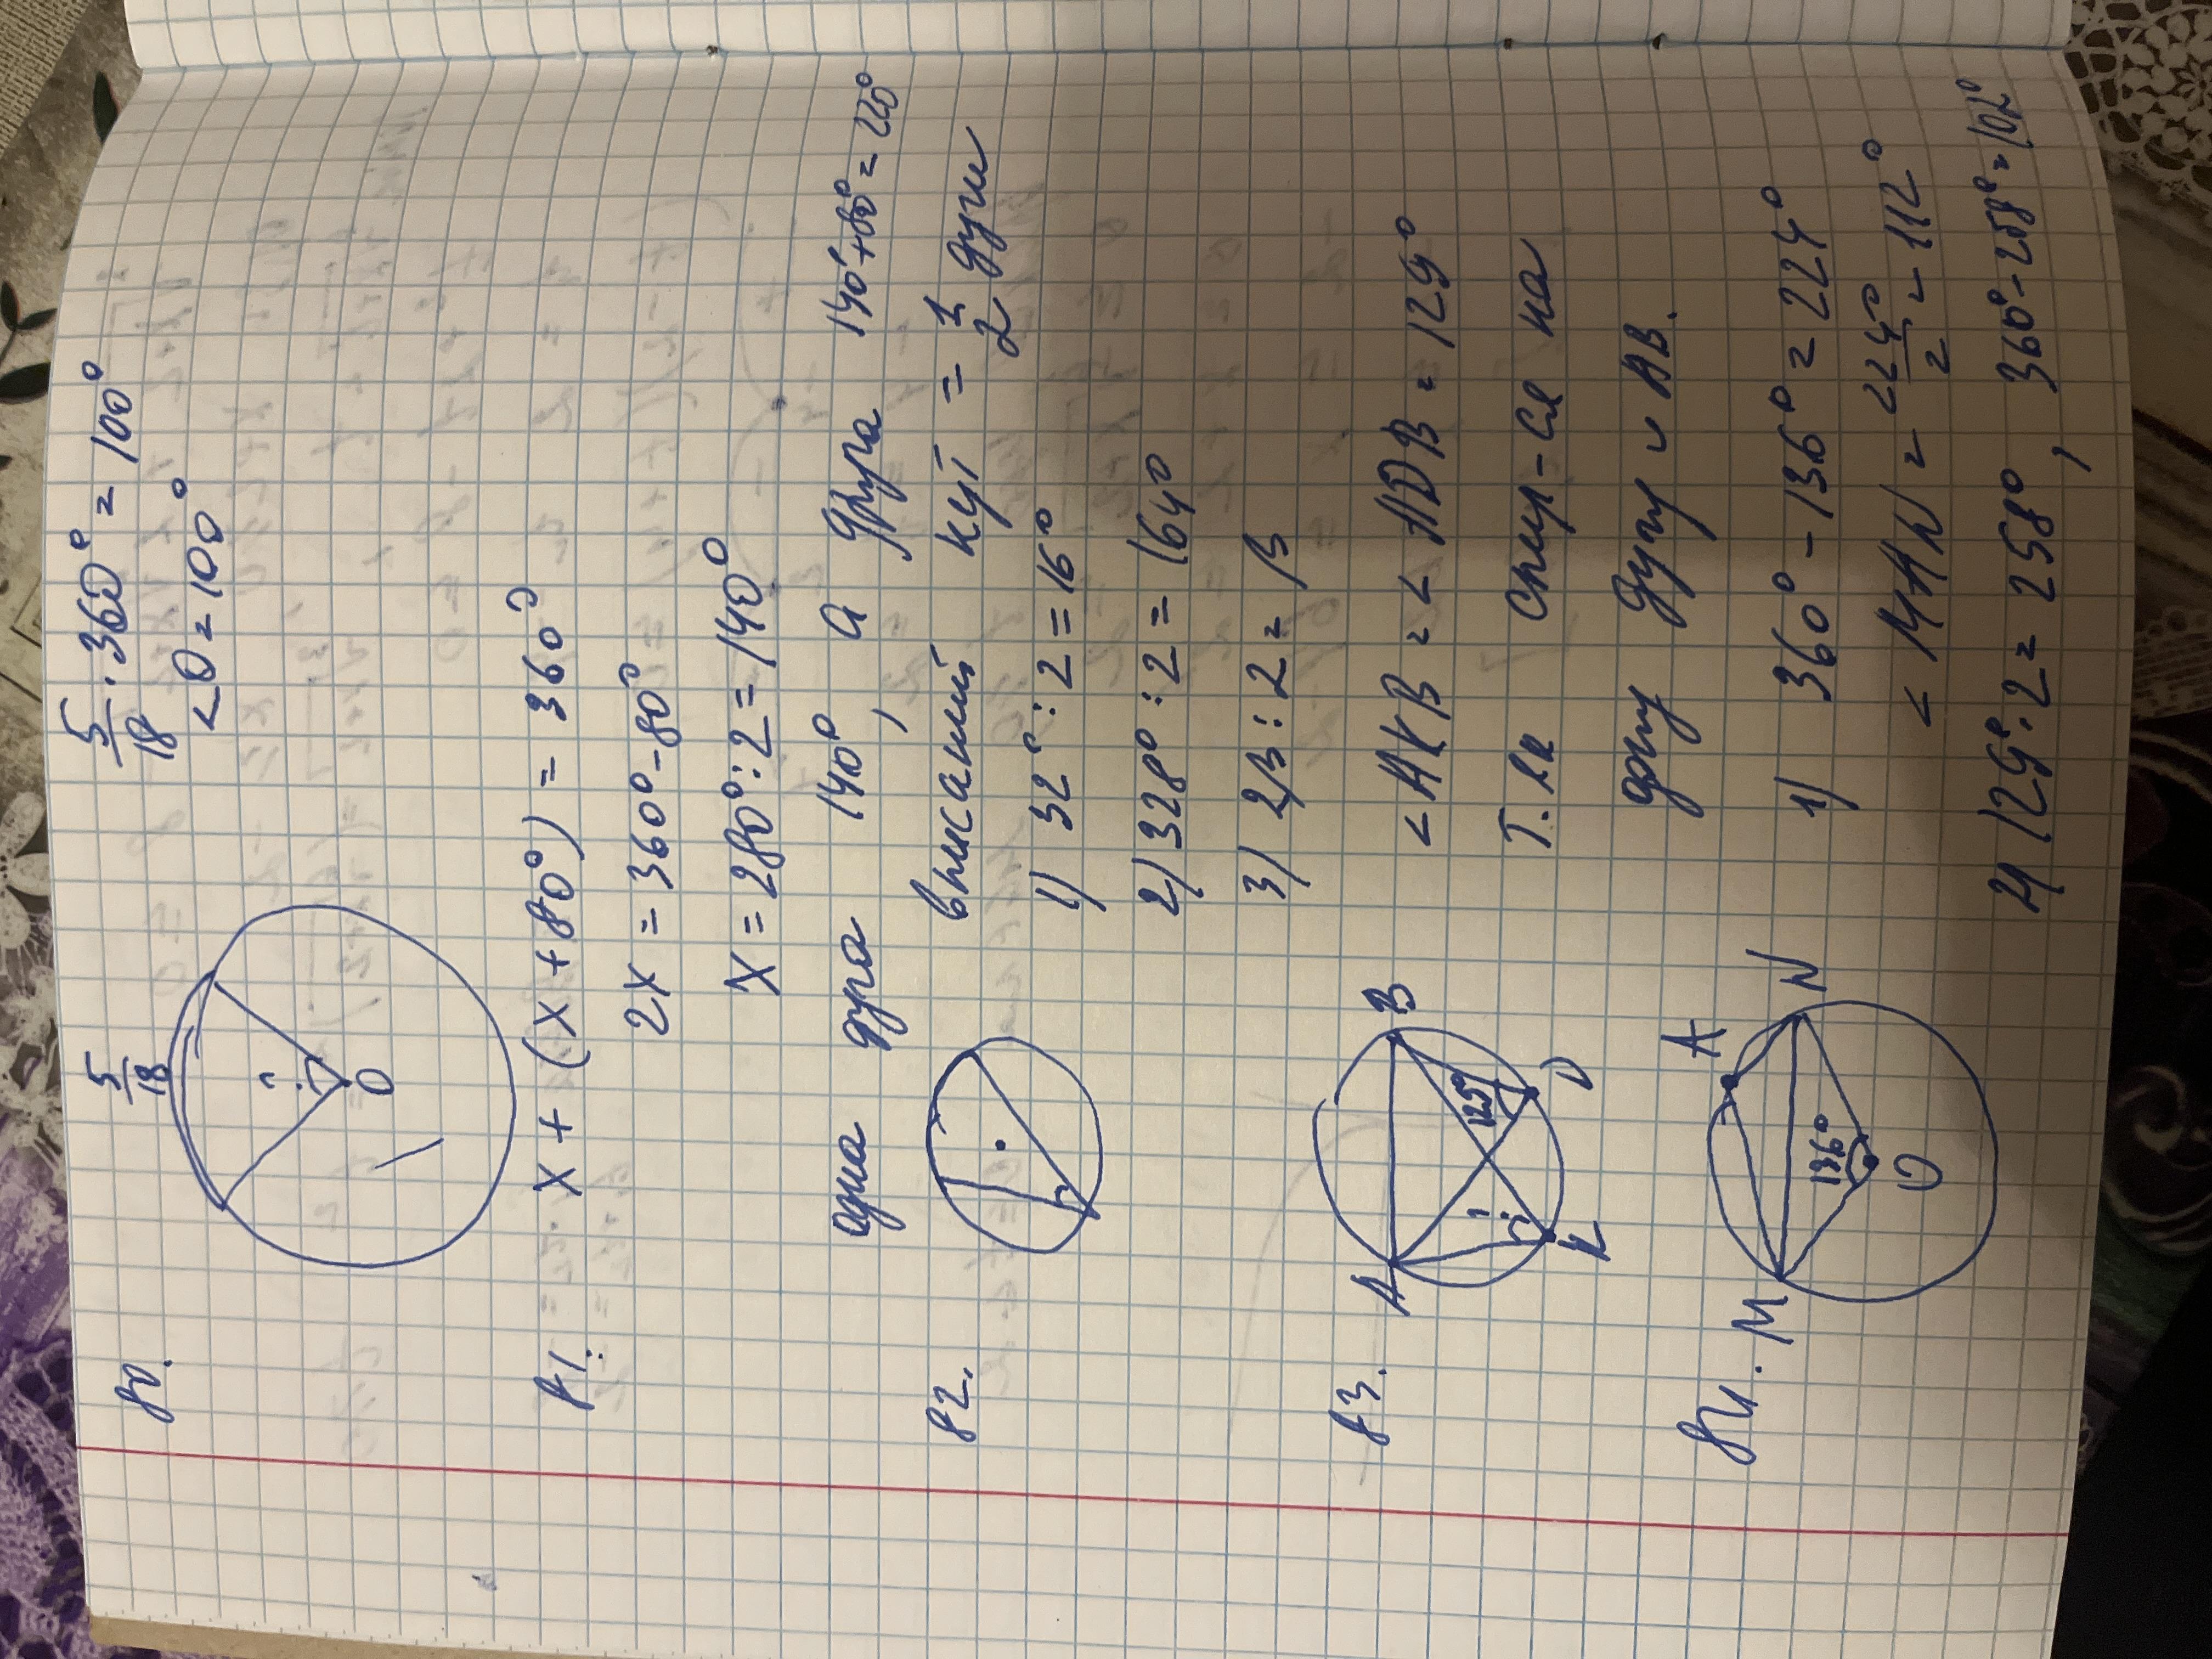 80.
5/18
O
5/18 · 360° = 100°
<O = 100°
81. x + (x + 80°) = 360°
2x = 360° - 80°
x = 280° : 2 = 140°
одна дуга 140°, а друга 140°+80° = 220°
82. вписаний кут = 1/2 дуги
1) 32° : 2 = 16°
2) 328° : 2 = 164°
3) 2β : 2 = β
83. A B K D 129°
<AKB = <ADB = 129°
Т.як спир-ся на
одну дугу ∪ AB.
84. M A N O 136°
1) 360° - 136° = 224°
<MAN = 224°/2 = 112°
2) 129°·2 = 258°, 360° - 258° = 102°